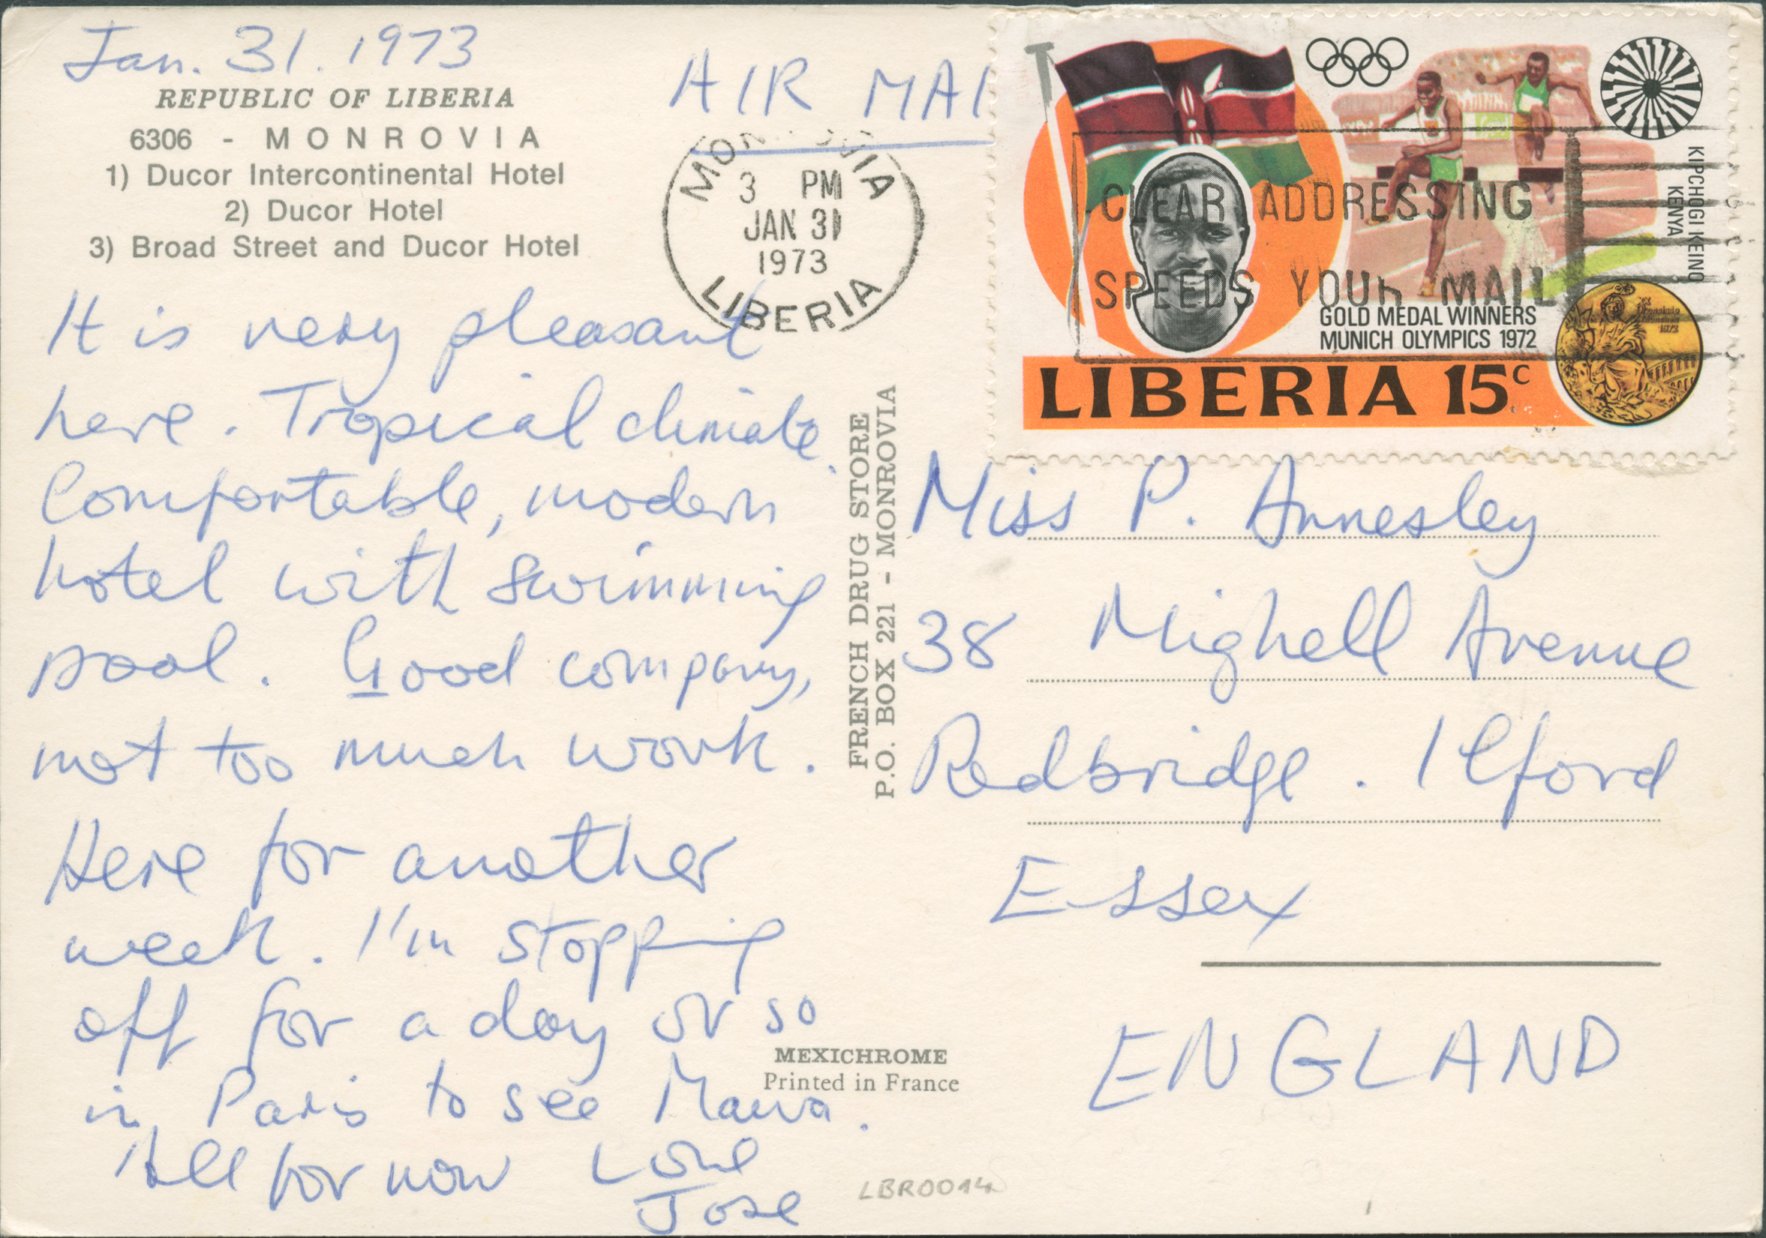 Jan. 31. 1973
REPUBLIC OF LIBERIA
6306 - MONROVIA
1) Ducor Intercontinental Hotel
2) Ducor Hotel
3) Broad Street and Ducor Hotel
It is very pleasant
here. Tropical climate.
Comfortable, modern
hotel with swimming
pool. Good company,
not too much work.
Here for another
week. I'm stopping
off for a day or so
in Paris to see
All for now Love
Jose
AIR MAI
MONROVIA
3 PM
JAN 31
1973
LIBERIA
CLEAR ADDRESSING
SPEEDS YOUR MAIL
KIPCHOGI KEINO
KENYA
GOLD MEDAL WINNERS
MUNICH OLYMPICS 1972
LIBERIA 15c
FRENCH DRUG STORE
P.O. BOX 221 - MONROVIA
Miss P. Annesley
38 Mighell Avenue
Redbridge. Ilford
Essex
ENGLAND
MEXICHROME
Printed in France
LBR0014